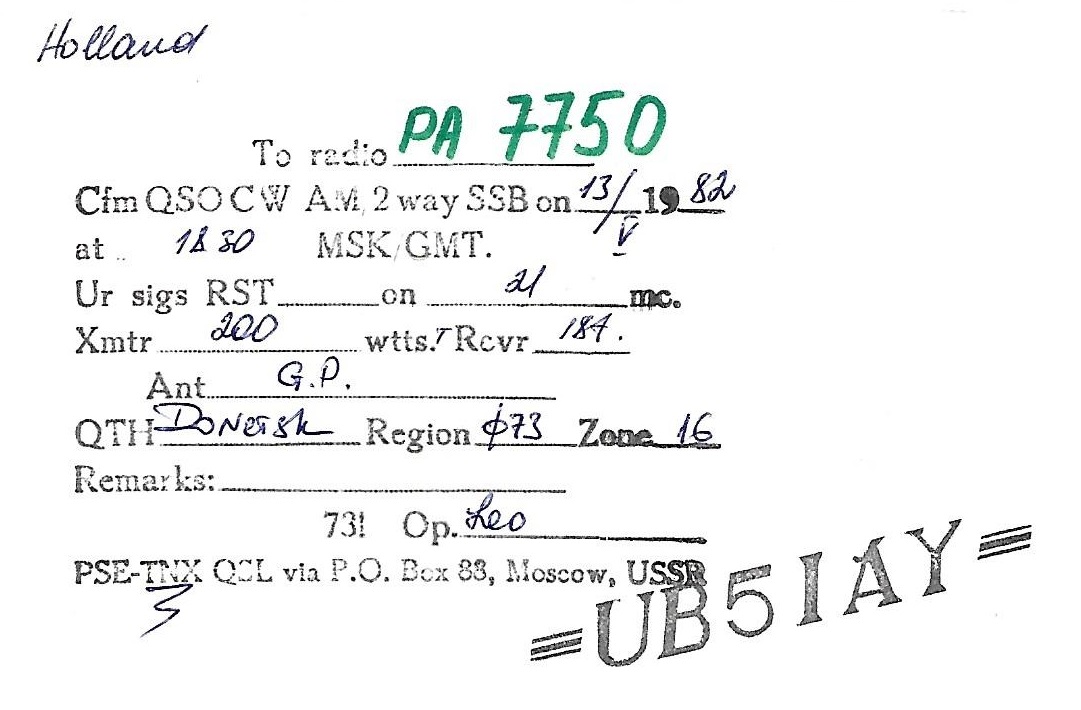 Holland
To radio PA 7750
Cfm QSO CW AM, 2 way SSB on 13/V 1982
at 1830 MSK/GMT.
Ur sigs RST on 21 mc.
Xmtr 200 wtts. Rcvr 187.
Ant G.P.
QTH Donetsk Region φ73 Zone 16
Remarks:
73! Op. Leo
PSE-TNX QSL via P.O. Box 88, Moscow, USSR
=UB5IAY=